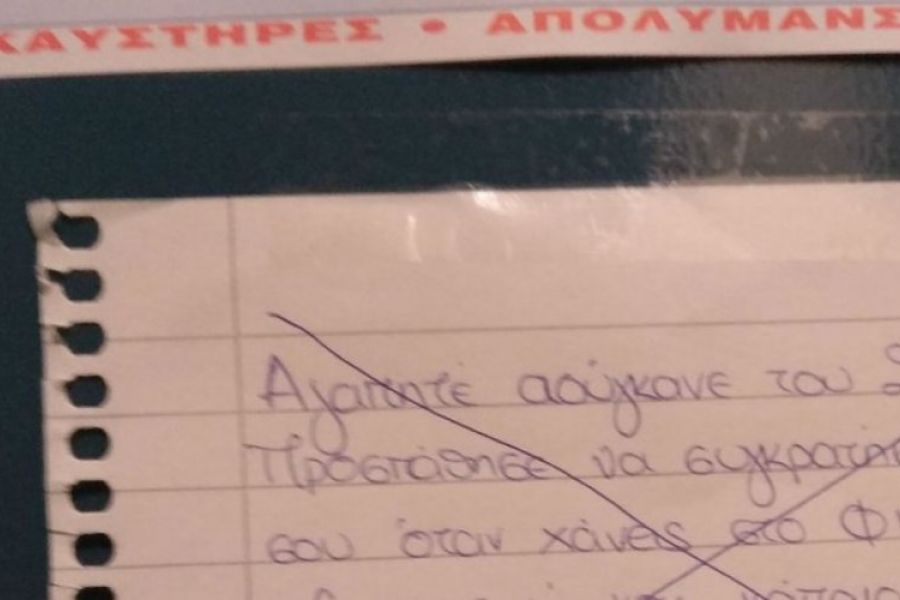 ΚΑΥΣΤΗΡΕΣ • ΑΠΟΛΥΜΑΝΣ
Αγαπητέ ασύγκανε του
Προσπάθησε να συγκρατήσ
σου όταν χάνεις στο Φ